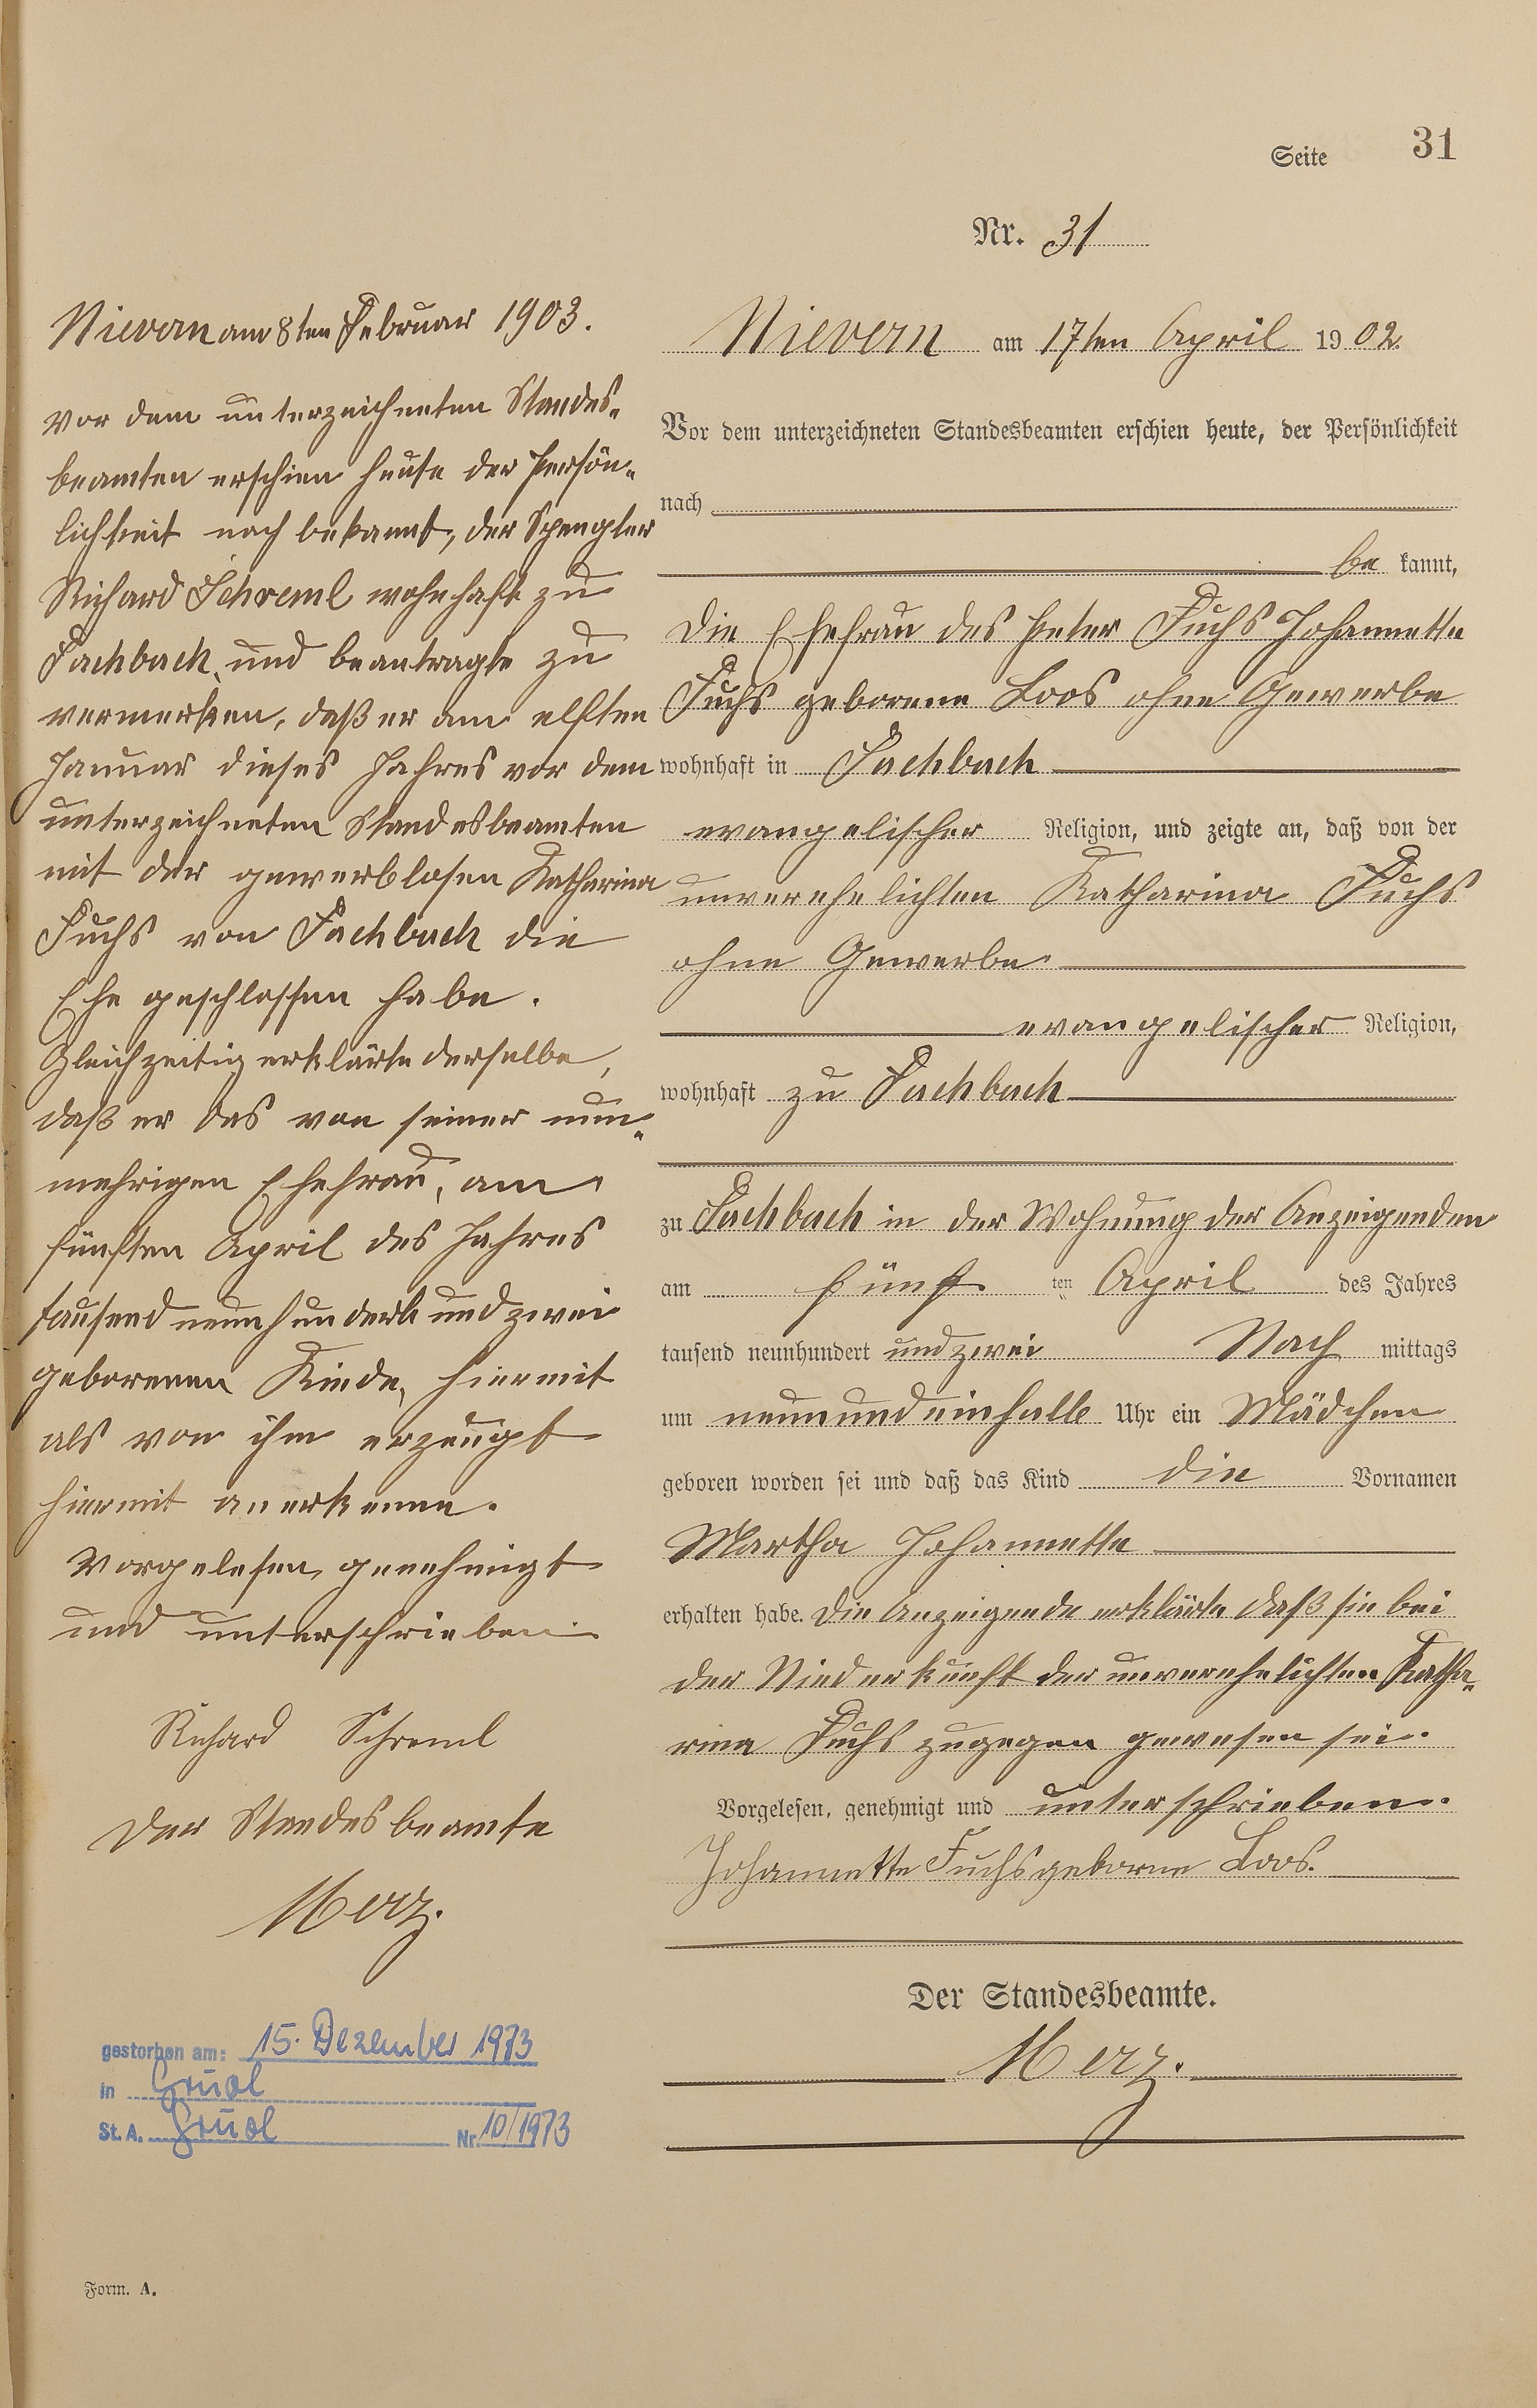 Seite 31
Nr. 31
Nievern am 17ten April 1902.
Vor dem unterzeichneten Standesbeamten erschien heute, der Persönlichkeit
nach
be kannt,
die Ehefrau des Peter Fuchs Johannette
Fuchs geborene Loos ohne Gewerbe
wohnhaft in Fachbach
evangelischer Religion, und zeigte an, daß von der
unverehelichten Katharina Fuchs
ohne Gewerbe
evangelischer Religion,
wohnhaft zu Fachbach
zu Fachbach in der Wohnung der Anzeigenden
am fünf ten April des Jahres
tausend neunhundert und zwei Nach mittags
um neunundeinhalb Uhr ein Mädchen
geboren worden sei und daß das Kind die Vornamen
Martha Johannette
erhalten habe. Die Anzeigende erklärte daß sie bei
der Niederkunft der unverehelichten Katha-
rina Fuchs zugegen gewesen sei.
Vorgelesen, genehmigt und unterschrieben.
Johannette Fuchs geborne Loos.
Der Standesbeamte.
Merz.
Nievern am 8ten Februar 1903.
Vor dem unterzeichneten Standes-
beamten erschien heute der Persön-
lichkeit nach bekannt, der Spengler
Richard Schreml wohnhaft zu
Fachbach, und beantragte zu
vermerken, daß er am elften
Januar dieses Jahres vor dem
unterzeichneten Standesbeamten
mit der gewerblosen Katharina
Fuchs von Fachbach die
Ehe geschlossen habe.
Gleichzeitig erklärte derselbe,
daß er das von seiner nun-
mehrigen Ehefrau, am
fünften April des Jahres
tausend neunhundert und zwei
geborenen Kinde, hiermit
als von ihm erzeugt
hiermit anerkenne.
Vorgelesen, genehmigt
und unterschrieben
Richard Schreml
Der Standesbeamte
Merz.
gestorben am: 15. Dezember 1973
in
St. A. Nr. 10/1973
Form. A.